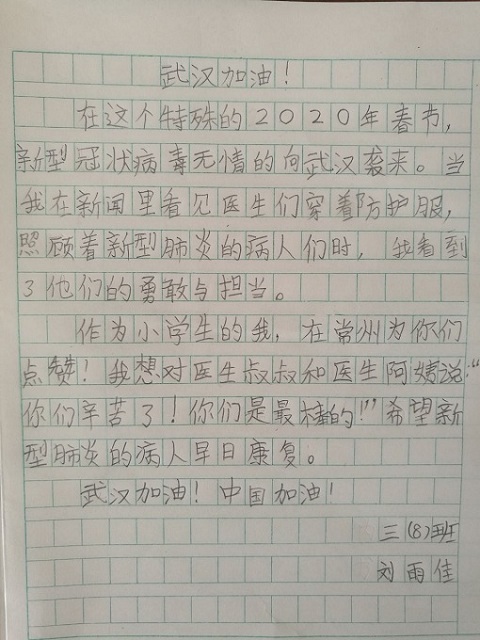 武汉加油！
在这个特殊的2020年春节，
新型冠状病毒无情的向武汉袭来。当
我在新闻里看见医生们穿着防护服，
照顾着新型肺炎的病人们时，我看到
了他们的勇敢与担当。
作为小学生的我，在常州为你们
点赞！我想对医生叔叔和医生阿姨说：“
你们辛苦了！你们是最棒的！”希望新
型肺炎的病人早日康复。
武汉加油！中国加油！
三(8)班
刘雨佳